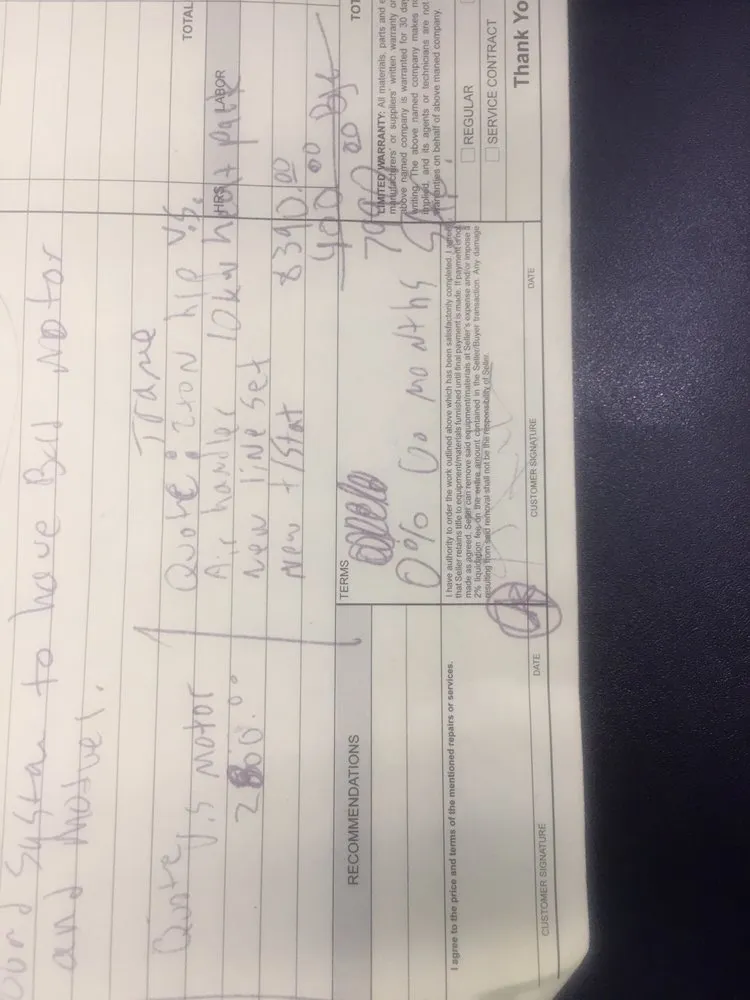 System to have Bad Motor
and Motor
Quote
V.S Motor
00.00
Trane
Quote: 2 ton h/p V.S.
Air handler 10kw heat pack
New line set
New t/stat 8390.00
400.00
7990.00
0% 60 months
TOTAL
HRS
LABOR
TERMS
RECOMMENDATIONS
I agree to the price and terms of the mentioned repairs or services.
CUSTOMER SIGNATURE
DATE
I have authority to order the work outlined above which has been satisfactorily completed. I agree
that Seller retains title to equipment/materials furnished until final payment is made. If payment is not
made as agreed, Seller can remove said equipment/materials at Seller's expense and/or impose a
2% liquidation fee on the entire amount contained in the Seller/Buyer transaction. Any damage
resulting from said removal shall not be the responsibility of Seller.
CUSTOMER SIGNATURE
DATE
LIMITED WARRANTY: All materials, parts and
manufacturers' or suppliers' written warranty
above named company is warranted for 30
writing. The above named company makes
implied, and its agents or technicians are not
warranties on behalf of above maned company.
REGULAR
SERVICE CONTRACT
Thank Yo